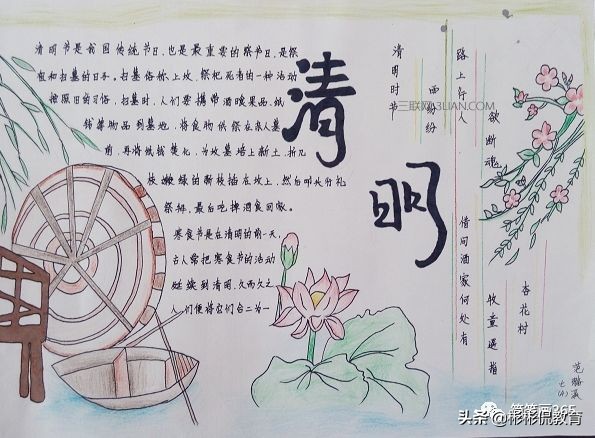 清明节是我国传统节日,也是最重要的祭节日,是祭
祖和扫墓的日子。扫墓俗称上坟,祭祀死者的一种活动
按照旧的习俗,扫墓时,人们要携带酒食果品,纸
钱等物品到墓地,将食物供祭在亲人墓
前,再将纸钱焚化,为坟墓培上新土,折几
枝嫩绿的新枝插在坟上,然后叩头行礼
祭拜,最后吃掉酒食回家。
寒食节是在清明的前一天,
古人常把寒食节的活动
延续到清明,久而久之
人们便将它们合二为一
清明
清明时节
雨纷纷
路上行人
欲断魂
借问酒家何处有
牧童遥指
杏花村
三联网 3LIAN.COM
头条 @彬彬侃教育